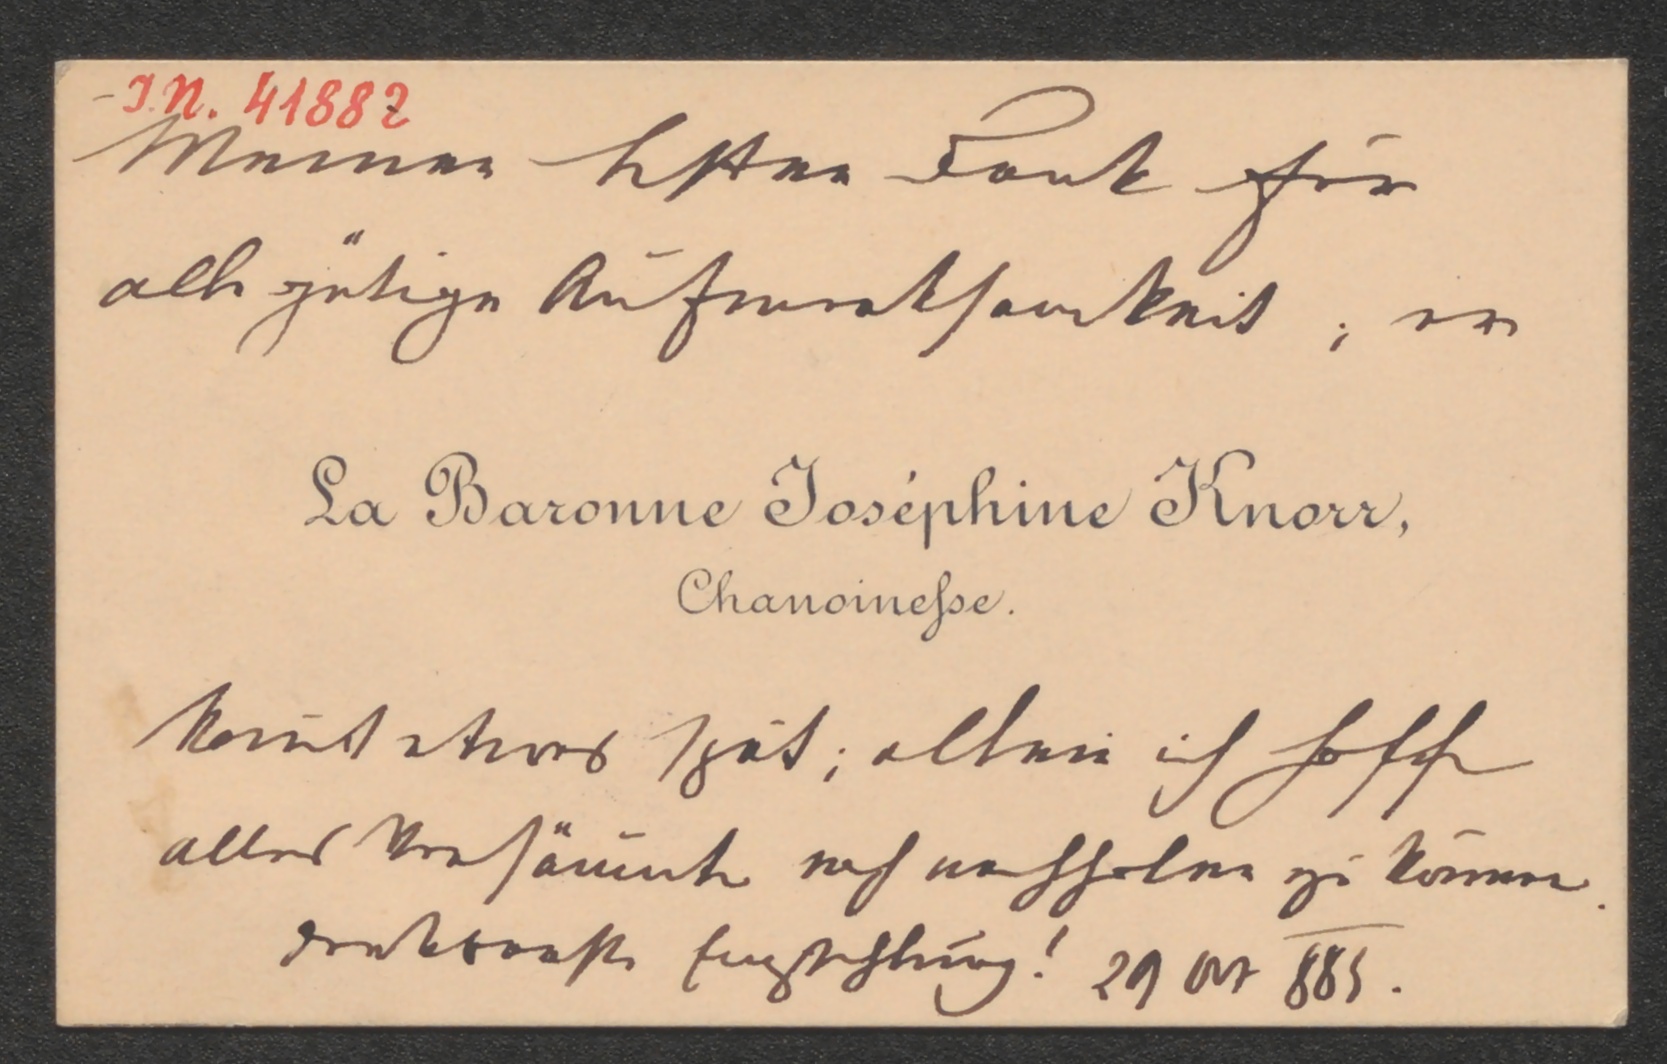 I.N. 41882
Meinen besten Dank für
alle gütige Aufmerksamkeit; er
La Baronne Joséphine Knorr,
Chanoinesse.
komt etwas spät; allein ich hoffe
alles Versäumte noch nachholen zu können.
Empfehlung! 29 Oct 885.